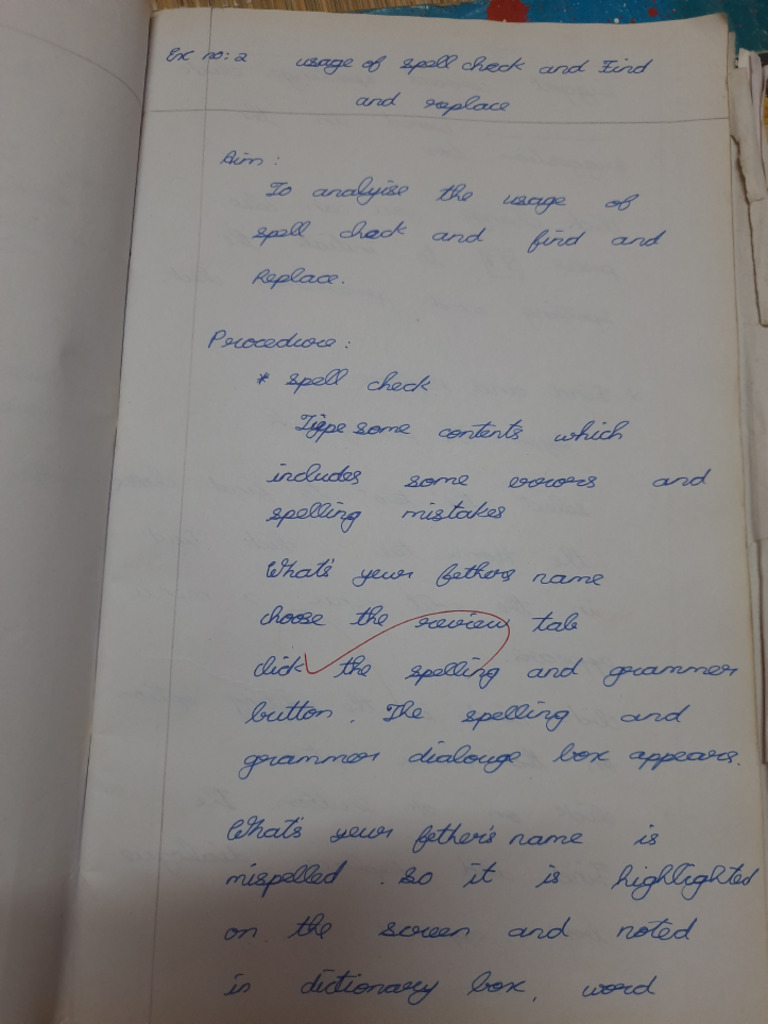 Ex no: 2 usage of spell check and Find
and replace
Aim :
To analyise the usage of
spell check and find and
Replace.
Procedure :
* spell check
Type some contents which
includes some errors and
spelling mistakes
What's your fether's name
choose the review tab
click the spelling and grammer
button. The spelling and
grammer dialouge box appears.
What's your fether's name is
mispelled . so it is highlighted
on the screen and noted
in dictionary box, word